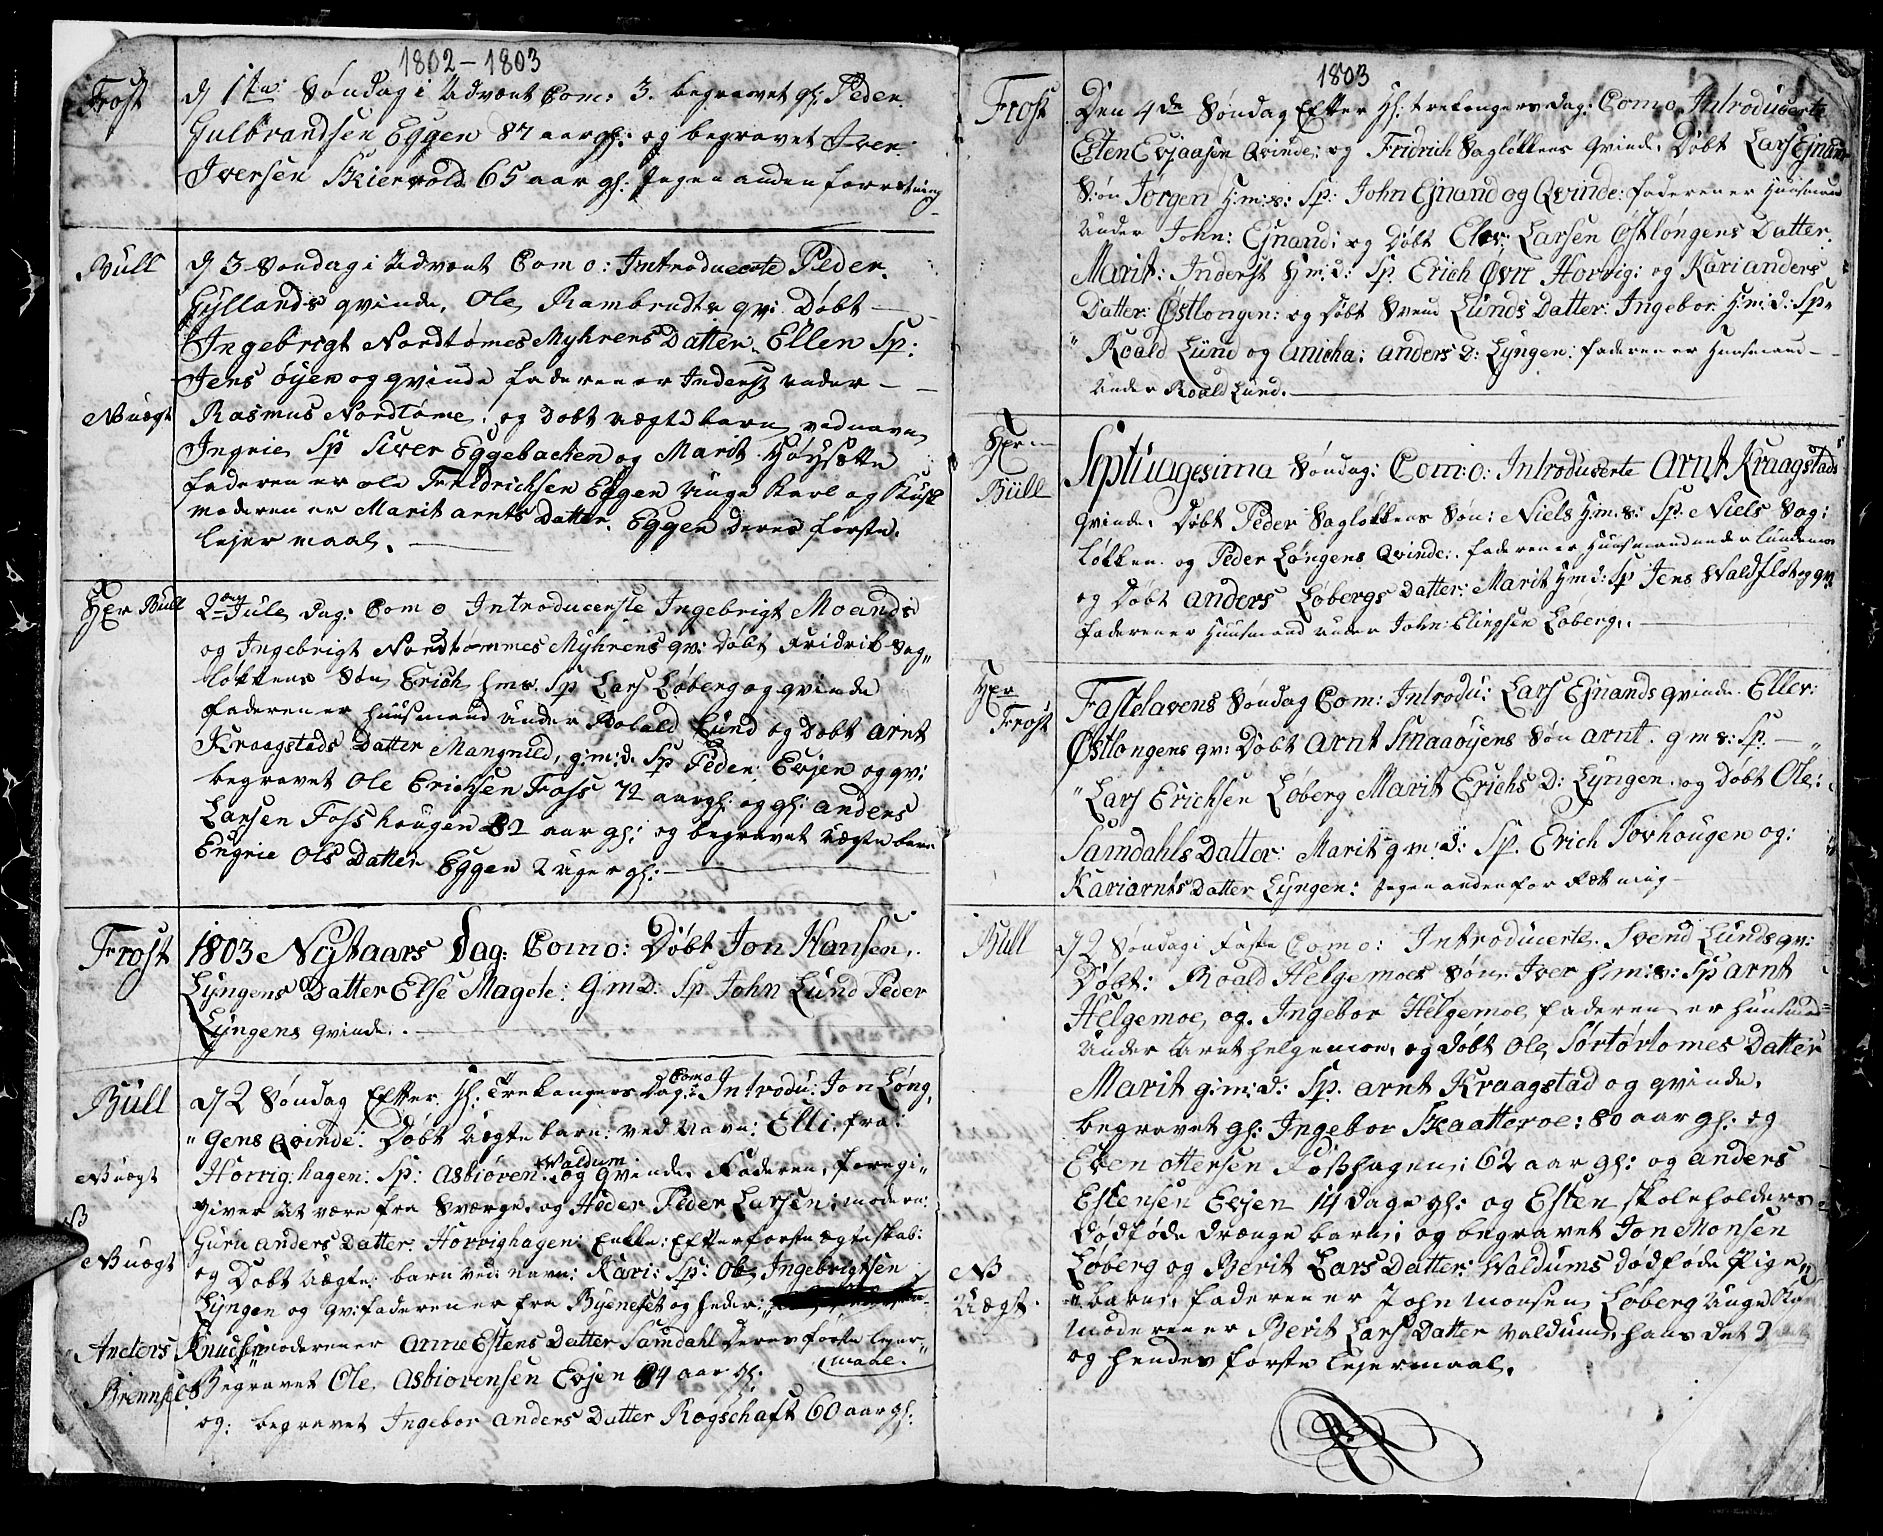 1802-1803
Frost
d 1te Søndag i Advent Com: 3. begravet gl: Peder
Gulbrandsen Eggen 87 aar gl: og begravet Iver
Iversen Skiervold 65 aar gl: Ingen anden forretning
Bull
d 3 Søndag i Advent Com o: Introducerte Peder
Gyllands qvinde, Ole Rambrudts qv: Døbt
Ingebrigt Nordtømes Myhrens Datter Ellen Sp:
Jens øyen og qvinde faderen er Inderst under
NB uægt
Rasmus Nordtøme, og Døbt uægte barn ved navn
Ingrie Sp Siver Eggebacken og Marit Høysætte
faderen er ole Fridrichsen Eggen unge Karl og
moderen er Marit arnts Datter Eggen deres første
lejermaal.
Hr Bull
2den Jule Dag: Com o Introducerte Ingebrigt Moands
og Ingebrigt Nordtømmes Myhrens qv: Døbt Fridrik Sag„
løkkens Søn Erich hms. Sp Lars Løberg og qvinde
faderen er huusmand under Roald Lund og Døbt arnt
Kraagstads Datter Mangnild, g:m:d. Sp Peder Evjen og qv:
begravet Ole Erichsen Foss 72 aar gl: og gl: anders
Larsen Fosshougen 82 aar gl: og begravet uægte barn
Engrie Ols Datter Eggen 2 uger gl:
Frost
1803 Nytaars Dag: Com o: Døbt Jon Hansen
Lyngens Datter Else Magete: G.m.D: Sp John Lund Peder
Lyngens qvinde.
Bull
d 2 Søndag Efter Hl: Trekongers Dag: Com o Introdu: Jon Løng„
„gens Qvinde: Døbt uægte barn: ved Navn: Elli: fra:
NB uægt
Horrighagen: Sp: Asbiøren Waldum og qvinde, Faderen, foregi„
giver at være fra Sværge, og Heder Peder Larsen: moderen:
NB
Guru anders Datter: Horrighagen: Enke: Efter første ægteskab:
NB uægt
og Døbt uægte: barn ved navn: Kari: Sp: Ole Ingebrigtsen
Lyngen og qv: faderen er fra Byeneset og heder:
Anders Knudsen
moderen er Anne Estens Datter Samdahl deres første lejer„
maal.
Brennset
Begravet Ole Asbiørensen Evjen 84 aar gl.
og: begravet Ingebor anders Datter Rogschaft 60 aar gl:
1803
Frost
Den 4de Søndag Efter Hl: trekongers dag: Com o Introducerte
Esten Evjaasen Qvinde: og Fridrich Sagløkkens Qvinde. Døbt Lars Ejnands
Søn Jørgen H:m:s: Sp: John Ejnand og Qvinde: faderen er Huusmand
under John: Ejnand: og Døbt Elev: Larsen Østløngens Datter:
Marit: Inderst H:m:d: Sp Erich Øvre Horrig: og Kari anders
Datter: Østlongen: og Døbt Svend Lunds Datter: Ingebor: H:m:d: Sp„
„ Roald Lund og anicha: anders D: Lyngen: faderen er Huusmand
under Roald Lund.
Hr
Bull
Septuagesima Søndag: Com:o: Introducerte Arnt Kraagstads
qvinde. Døbt Peder Sagløkkens Søn: Niels H:m:s: Sp. Niels Sag:
løkken og Peder Løngens Qvinde:. faderen er Huusmand under
og Døbt anders Løbergs Datter: Marit H:m:d: Sp Jens Waldflot og qv:
faderen er Huusmand under John Elingsen Løberg.
Hr
Frost
Fastelavens Søndag Com: Introdu: Lars Ejnands qvinde. Eller:
Østlongens qv: Døbt arnt Smaaøyens Søn arnt. g m s: Sp.
„ Lars Erichsen Løberg Marit Erichs D: Lyngen. og Døbt Ole:
Samdahls Datter: Marit g m: d: Sp. Erich Tovhougen og:
Kari arnts Datter Lyngen: Ingen anden forretning
Bull
d 2 Søndag i Faste Com o: Introducerte. Svend Lunds qv:
Døbt: Roald Helgemoes Søn Iver h:m:s: Sp arnt
Helgemoe, og Ingebor Helgemoe, faderen er huusmand
under Arnt helgemoe, og døbt Ole Sørtørtømes Datter
Marit g:m:d: Sp. arnt Kraagstad og qvinde,
begravet gl: Ingebor Skaatteroe: 80 aar gl: og
Even ottersen Fosshagen: 62 aar gl: og anders
Estensen Evjen 14 Dage gl: og Esten skoleholders
dødføde drænge barn: og begravet Jon Monsen
NB
Løberg og Berit Lars Datter: Waldums dødføde Pige
Uægt
barn, faderen er John Monsen Løberg unge
moderen er Berit Lars Datter Valdum, hans det
og hendes første lejermaal.